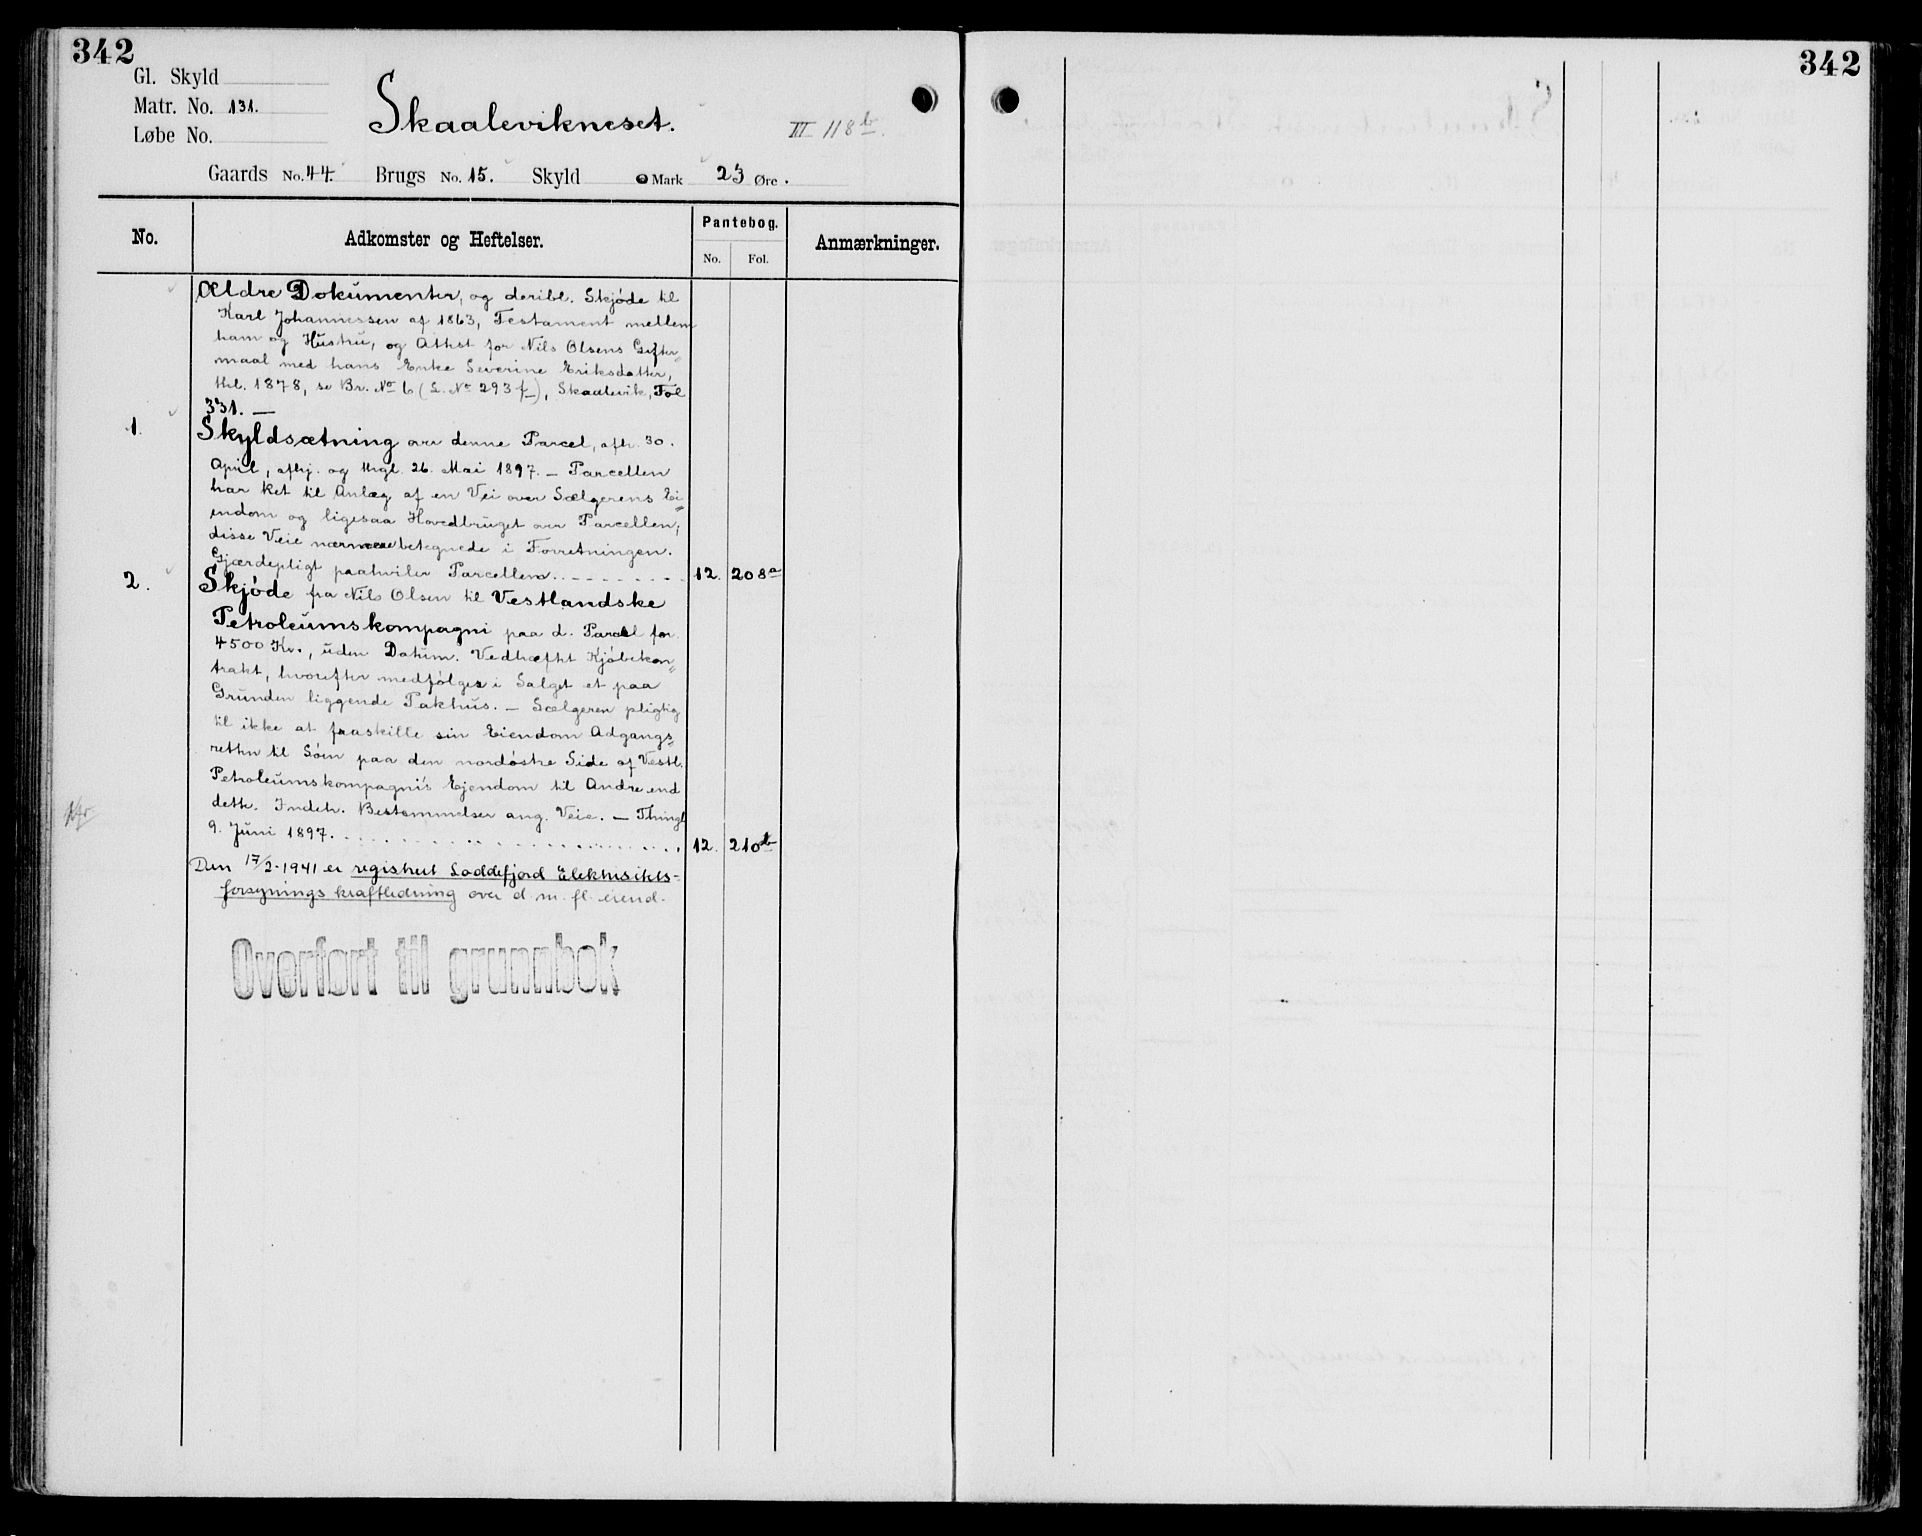 342
342
Gl. Skyld
Matr. No. 131.
Løbe No.
Skaalevikneset.
III 118 b.
Gaards No. 44. Brugs No. 15. Skyld 0 Mark 23 Øre.
No.
Adkomster og Heftelser.
Pantebog.
No. Fol.
Anmærkninger.
Ældre Dokumenter, og deribl. Skjøde til
Karl Johannessen af 1863, Testament mellem
ham og Hustru, og Attest for Nils Olsens Gifter=
maal med hans Enke Severine Eriksdatter,
thl. 1878, se Br. No 6 (L. No 293 f), Skaalevik, Fol
331. —
1. Skyldsætning over denne Parcel, afh. 30.
April, afhj. og thgl. 26. Mai 1897. — Parcellen
har Ret til Anlæg af en Vei over Sælgerens Ei=
endom og ligesaa Hovedbruget over Parcellen;
disse Veie nærmere betegnede i Forretningen.
Gjærdepligt paahviler Parcellen. 12. 208a
2. Skjøde fra Nils Olsen til Vestlandske
Petroleumskompagni paa d. Parcel for
4500 Kr., uden Datum. Vedhæftet Kjøbekon=
trakt, hvorefter medfølger i Salget et paa
Grunden liggende Pakhus. — Sælgeren pligtig
til ikke at fraskille sin Eiendom Adgangs=
retten til Søen paa den nordøstre Side af Vestl.
Petroleumskompagni's Ejendom til Andre end
dette. Indeh. Bestemmelser ang. Veie. — Thingl
9. Juni 1897. 12. 210b
Den 17/2-1941 er registrert Loddefjord Elektrisitets-
forsynings kraftledning over d. m. fl. eiend.
Overført til grunnbok